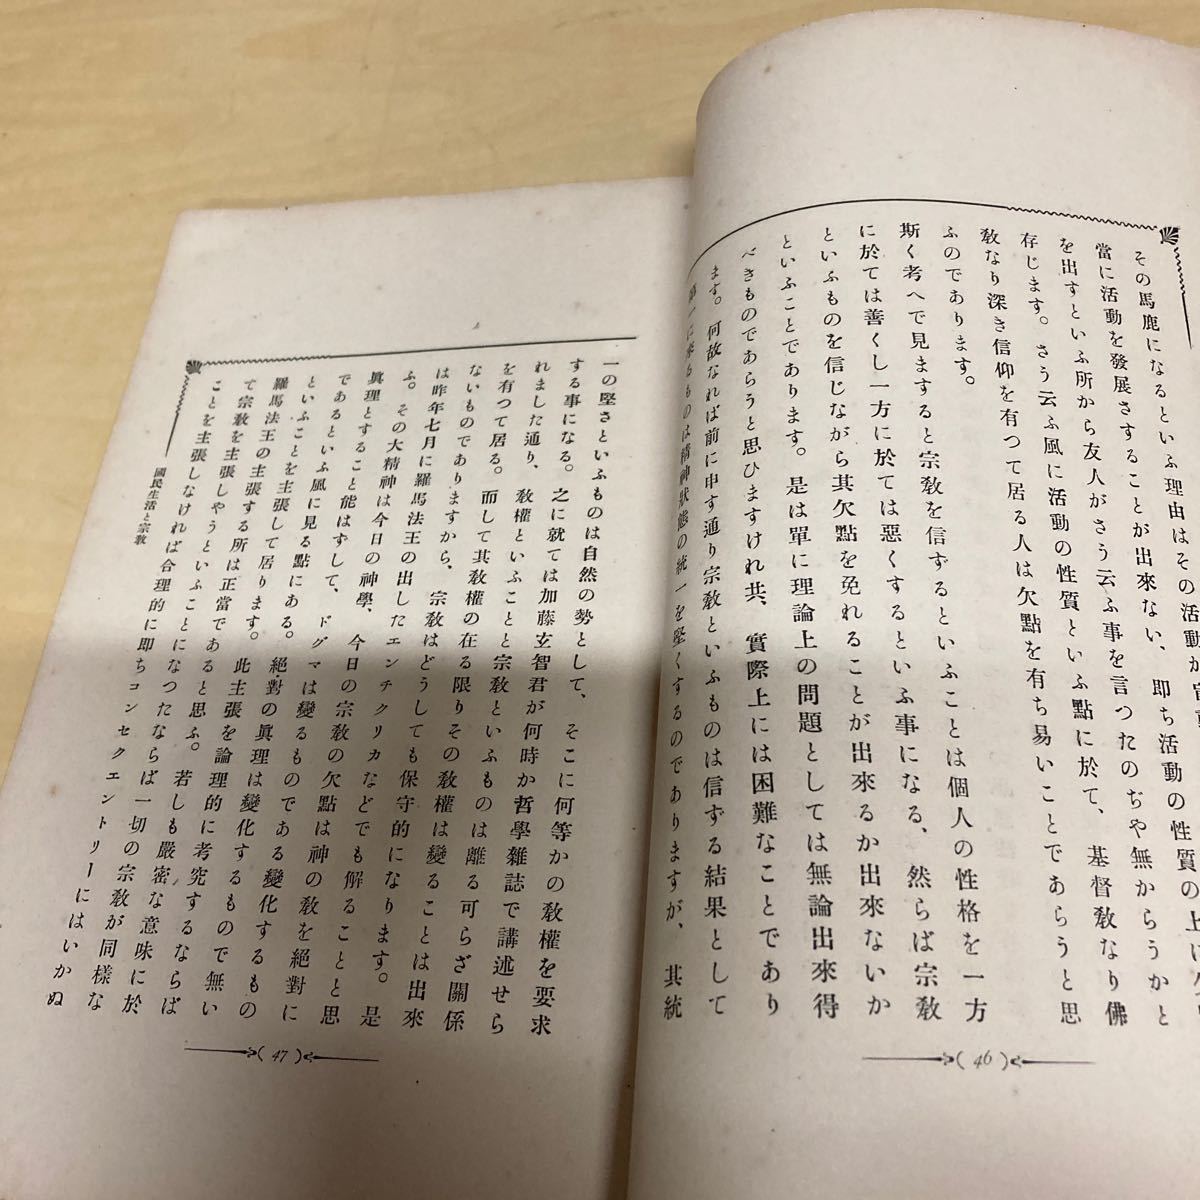 その馬鹿になるといふ理由はその活動が
當に活動を發展さすることが出來ない、即ち活動の性質の上に
を出すといふ所から友人がさう云ふ事を言つたのぢや無からうかと
存じます。さう云ふ風に活動の性質といふ點に於て、基督教なり佛
教なり深き信仰を有つて居る人は欠點を有ち易いことであらうと思
ふのであります。
斯く考へで見ますると宗教を信ずるといふことは個人の性格を一方
に於ては善くし一方に於ては惡くするといふ事になる、然らば宗教
といふものを信じながら其欠點を免れることが出來るか出來ないか
といふことであります。是は單に理論上の問題としては無論出來得
べきものであらうと思ひますけれ共、實際上には困難なことであり
ます。何故なれば前に申す通り宗教といふものは信ずる結果として
第一に來るものは精神狀態の統一を堅くするのでありますが、其統
(46)
一の堅さといふものは自然の勢として、そこに何等かの教權を要求
する事になる。之に就ては加藤玄智君が何時か哲學雜誌で講述せら
れました通り、教權といふことと宗教といふものは離る可らざ關係
を有つて居る。而して其教權の在る限りその教權は變ることは出來
ないものでありますから、宗教はどうしても保守的になります。是
は昨年七月に羅馬法王の出したエンチクリカなどでも解ることと思
ふ。その大精神は今日の神學、今日の宗教の欠點は神の教を絕對に
眞理とすること能はずして、ドグマは變るものである變化するもの
であるといふ風に見る點にある。絕對の眞理は變化するもので無い
といふことを主張して居ります。此主張を論理的に考究するならば
羅馬法王の主張する所は正當であると思ふ。若しも嚴密な意味に於
て宗教を主張しやうといふことになつたならば一切の宗教が同樣な
ことを主張しなければ合理的に即ちコンセクエントリーにはいかぬ
國民生活と宗教
(47)